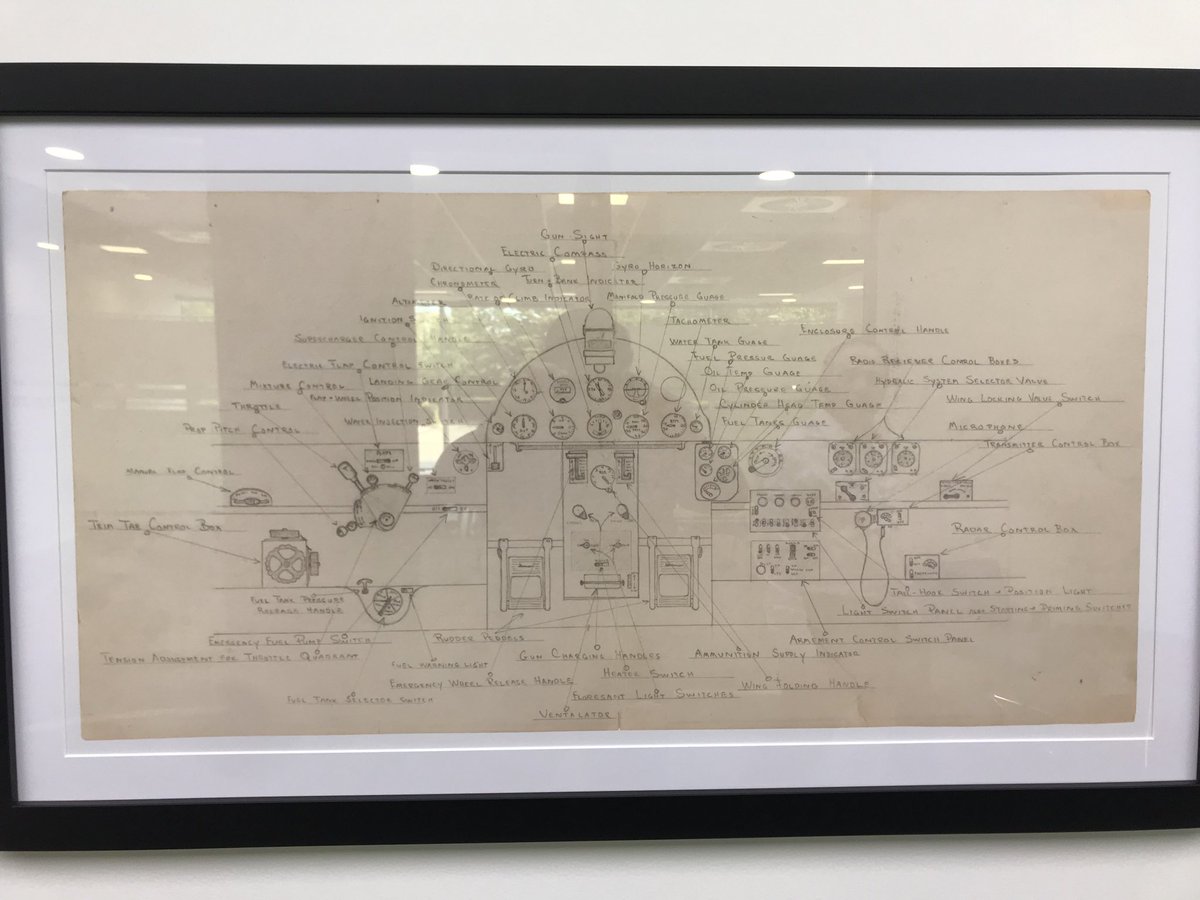 Gun Sight
Electric Compass
Directional Gyro
Gyro Horizon
Chronometer
Turn & Bank Indicator
Rate of Climb Indicator
Manifold Pressure Guage
Altimeter
Ignition Switch
Tachometer
Supercharger Control Handle
Water Tank Guage
Enclosure Control Handle
Electric Flap Control Switch
Fuel Pressur Guage
Radio Reciever Control Boxes
Mixture Control
Landing Gear Control
Oil Temp Guage
Hydralic System Selector Valve
Flap-Wheel Position Indicator
Oil Pressure Guage
Wing Locking Valve Switch
Throttle
Cylinder Head Temp Guage
Prop Pitch Control
Water Injection Switch
Fuel Tanks Guage
Microphone
Transmitter Control Box
Manual Flap Control
Trim Tab Control Box
Radar Control Box
Fuel Tank Pressure
Release Handle
Tail-Hook Switch & Position Light
Light Switch Panel also Starting & Priming Switches
Emergency Fuel Pump Switch
Rudder Peddels
Armement Control Switch Panel
Tension Adjustment for Throttle Quadrant
Fuel Warning Light
Gun Charging Handles
Ammunition Supply Indicator
Emergency Wheel Release Handle
Heater Switch
Wing Holding Handle
Fuel Tank Selector Switch
Floresant Light Switches
Ventalator